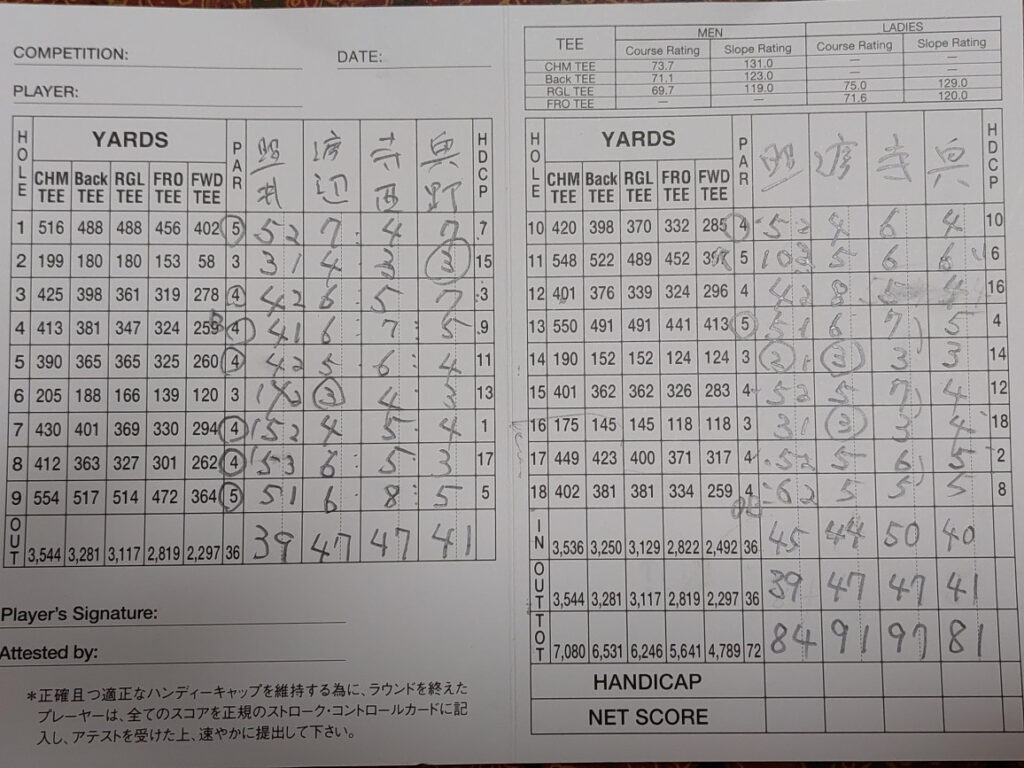 COMPETITION: DATE:
PLAYER:
HOLE YARDS PAR 照井 渡辺 寺西 奥野 HDCP
CHM TEE Back TEE RGL TEE FRO TEE FWD TEE
1 516 488 488 456 402 5 52 7 4 7 7
2 199 180 180 153 58 3 31 4 3 3 15
3 425 398 361 319 278 4 42 6 5 7 3
4 413 381 347 324 4 41 6 7 5 9
5 390 365 365 325 260 4 42 5 6 4 11
6 205 188 166 139 120 3 3 4 3 13
7 430 401 369 330 294 4 52 4 5 4 1
8 412 363 327 301 262 4 53 6 5 3 17
9 554 517 514 472 364 5 51 6 8 5 5
OUT 3,544 3,281 3,117 2,819 2,297 36 39 47 47 41
Player's Signature:
Attested by:
*正確且つ適正なハンディーキャップを維持する為に、ラウンドを終えた
プレーヤーは、全てのスコアを正規のストローク・コントロールカードに記
入し、アテストを受けた上、速やかに提出して下さい。
TEE MEN LADIES
Course Rating Slope Rating Course Rating Slope Rating
CHM TEE 73.7 131.0 — —
Back TEE 71.1 123.0 — —
RGL TEE 69.7 119.0 75.0 129.0
FRO TEE — — 71.6 120.0
HOLE YARDS PAR 照 渡 寺 奥 HDCP
CHM TEE Back TEE RGL TEE FRO TEE FWD TEE
10 420 398 370 332 285 4 52 4 6 4 10
11 548 522 489 452 5 10 5 6 6 6
12 401 376 339 324 296 4 42 8 5 4 16
13 550 491 491 441 413 5 51 6 7 5 4
14 190 152 152 124 124 3 3 3 3 14
15 401 362 362 326 283 4 52 5 7 4 12
16 175 145 145 118 118 3 31 3 3 4 18
17 449 423 400 371 317 4 52 5 6 5 2
18 402 381 381 334 259 4 62 5 5 5 8
IN 3,536 3,250 3,129 2,822 2,492 36 45 44 50 40
OUT 3,544 3,281 3,117 2,819 2,297 36 39 47 47 41
TOT 7,080 6,531 6,246 5,641 4,789 72 84 91 97 81
HANDICAP
NET SCORE